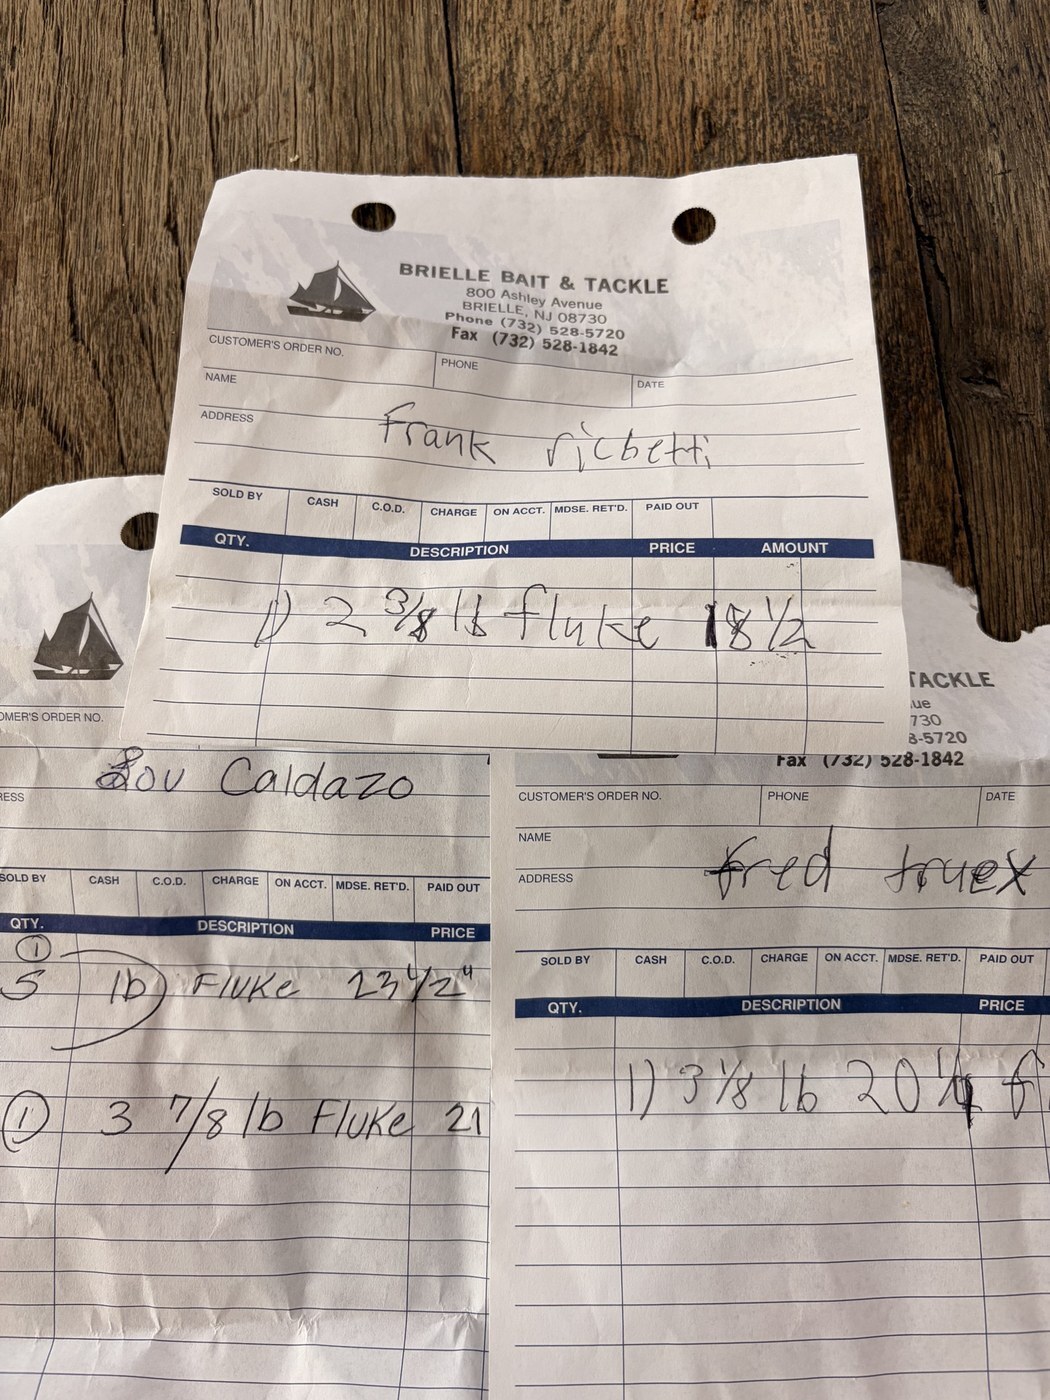 BRIELLE BAIT & TACKLE
800 Ashley Avenue
BRIELLE, NJ 08730
Phone (732) 528-5720
Fax (732) 528-1842
CUSTOMER'S ORDER NO. PHONE DATE
NAME
ADDRESS
Frank ricbetti
SOLD BY CASH C.O.D. CHARGE ON ACCT. MDSE. RET'D. PAID OUT
QTY. DESCRIPTION PRICE AMOUNT
1) 2 3/8 lb fluke 18 1/2
OMER'S ORDER NO.
Lou Caldazo
RESS
SOLD BY CASH C.O.D. CHARGE ON ACCT. MDSE. RET'D. PAID OUT
QTY. DESCRIPTION PRICE
1
5 lb FLUKe 23 1/2"
1 3 7/8 lb FLUKe 21
TACKLE
ue
730
8-5720
Fax (732) 528-1842
CUSTOMER'S ORDER NO. PHONE DATE
NAME
fred truex
ADDRESS
SOLD BY CASH C.O.D. CHARGE ON ACCT. MDSE. RET'D. PAID OUT
QTY. DESCRIPTION PRICE
1) 3 1/8 lb 20 1/4 f